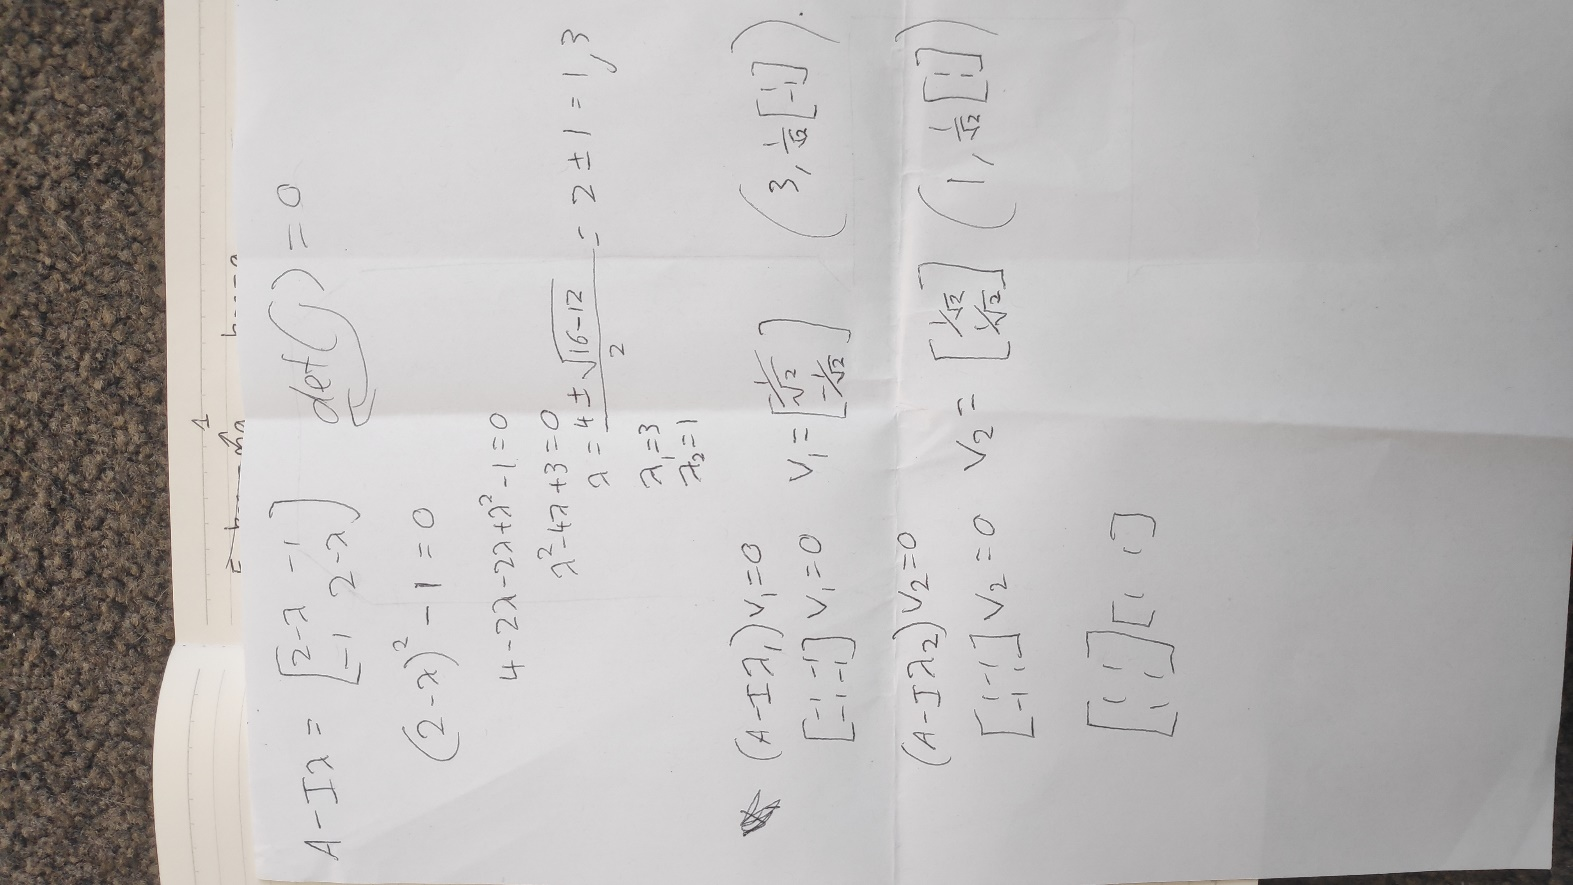 A-Iλ = [2-λ -1 -1 2-λ] det( ) = 0
(2-λ)² - 1 = 0
4-2λ-2λ+λ²-1=0
λ²-4λ+3=0
λ = 4±√16-12 / 2 = 2 ± 1 = 1, 3
λ₁=3
λ₂=1
(A-Iλ₁)v₁=0
[-1 -1 -1 -1] v₁=0 v₁= [1/√2 -1/√2] (3, 1/√2 [1 -1])
(A-Iλ₂)v₂=0
[1 -1 -1 1] v₂=0 v₂= [1/√2 1/√2] (1, 1/√2 [1 1])